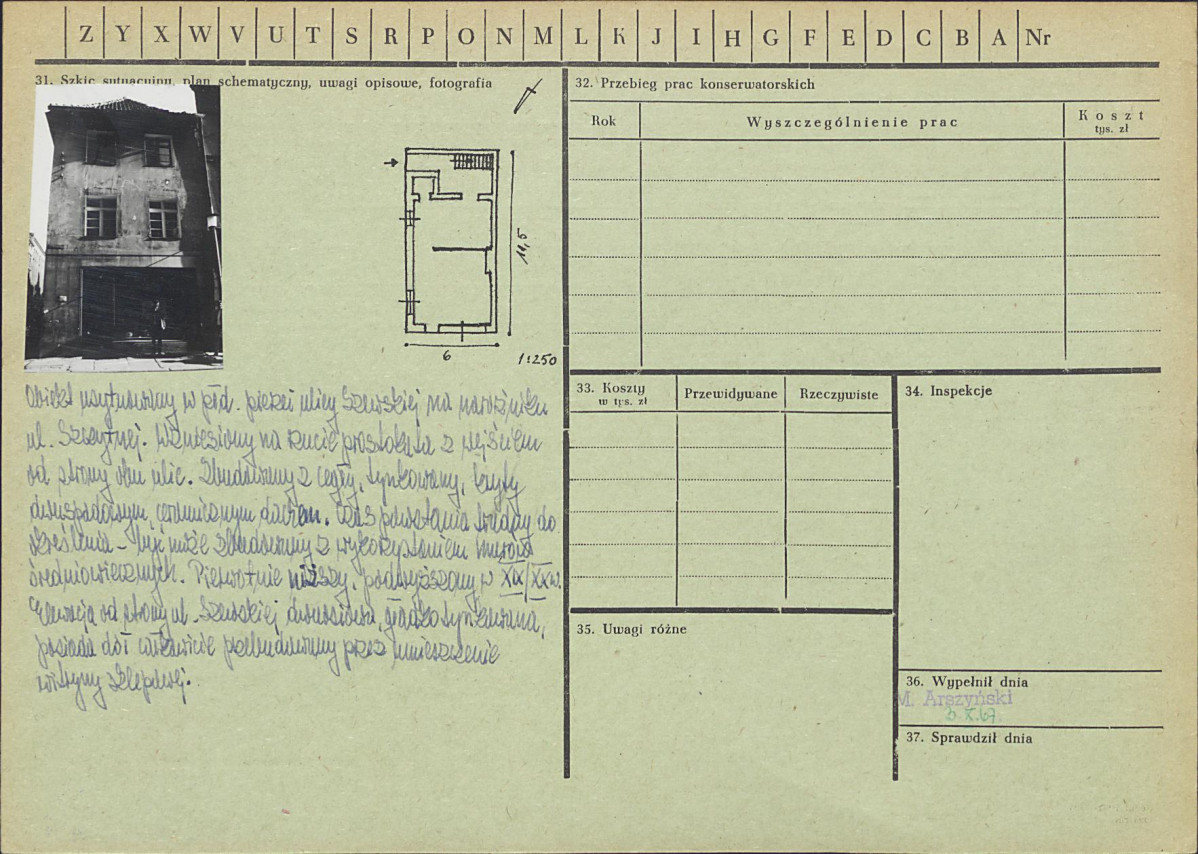 Z Y X W V U T S R P O N M L K J I H G F E D C B A Nr
31. Szkic sytuacyjny, plan schematyczny, uwagi opisowe, fotografia
11,5
6
1:250
Obiekt usytuowany w płd. pierzei ulicy Szewskiej na narożniku
ul. Szczytnej. Wzniesiony na rzucie prostokąta z wejściem
od strony obu ulic. Zbudowany z cegły, tynkowany, kryty
dwuspadowym, ceramicznym dachem. Czas powstania trudny do
określenia – być może zbudowany z wykorzystaniem murów
średniowiecznych. Pierwotnie niższy, podwyższony w XIX/XX w.
Elewacja od strony ul. Szewskiej dwuosiowa, gładko tynkowana,
posiada dół całkowicie przebudowany przez umieszczenie
witryny sklepowej.
32. Przebieg prac konserwatorskich
Rok
Wyszczególnienie prac
Koszt
tys. zł
33. Koszty
w tys. zł
Przewidywane
Rzeczywiste
34. Inspekcje
35. Uwagi różne
36. Wypełnił dnia
M. Arszyński
X.67
37. Sprawdził dnia